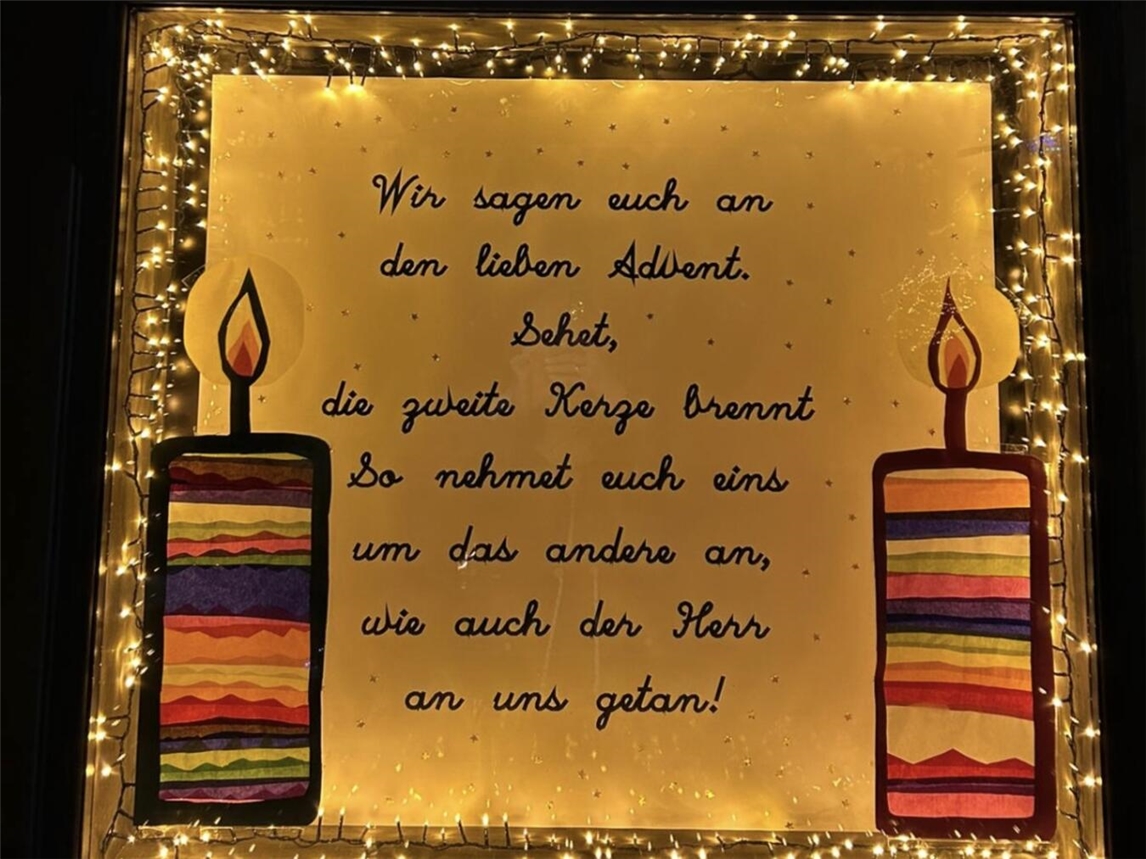 Wir sagen euch an
den lieben Advent.
Sehet,
die zweite Kerze brennt
So nehmet euch eins
um das andere an,
wie auch der Herr
an uns getan!